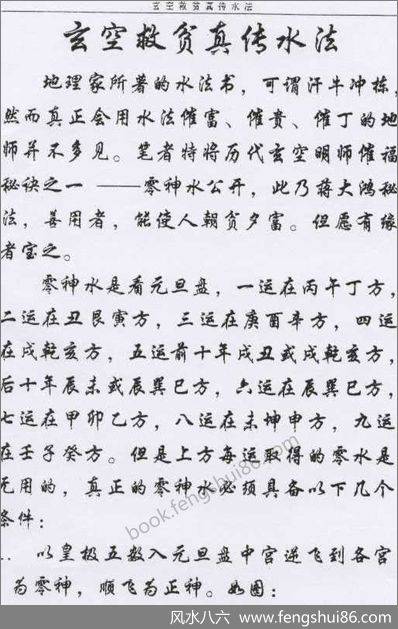 玄空救贫真传水法
玄空救贫真传水法
地理家所著的水法书，可谓汗牛冲栋，
然而真正会用水法催富、催贵、催丁的地
师并不多见。笔者特将历代玄空明师催福
秘诀之一——零神水公开，此乃蒋大鸿秘
法，善用者，能使人朝贫夕富。但愿有缘
者宝之。
零神水是看元旦盘，一运在丙午丁方，
二运在丑艮寅方，三运在庚酉辛方，四运
在戌乾亥方，五运前十年戌丑或戌乾亥方，
后十年辰未或辰巽巳方，六运在辰巽巳方，
七运在甲卯乙方，八运在未坤申方，九运
在壬子癸方。但是上方每运取得的零水是
无用的，真正的零神水必须具备以下几个
条件：
.. 以皇极五数入元旦盘中宫逆飞到各宫
为零神，顺飞为正神。如图：
book.fengshui86.com
风水八六 www.fengshui86.com